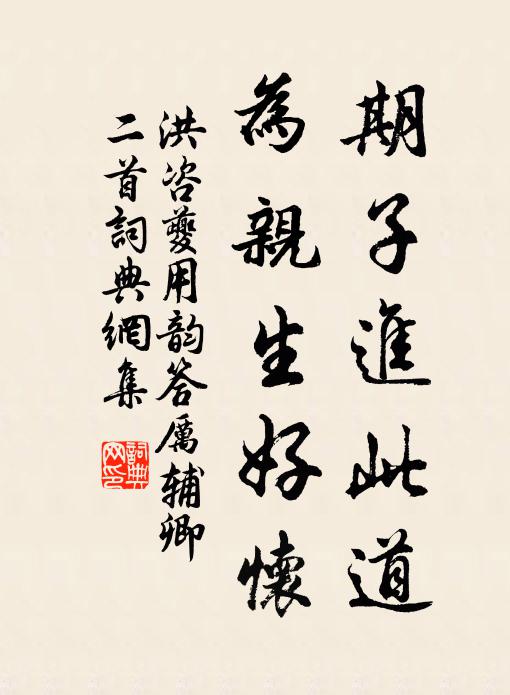 期子進此道
為親生好懷
洪咨夔用韵答厲輔卿
二首詞典網集
詞典网印